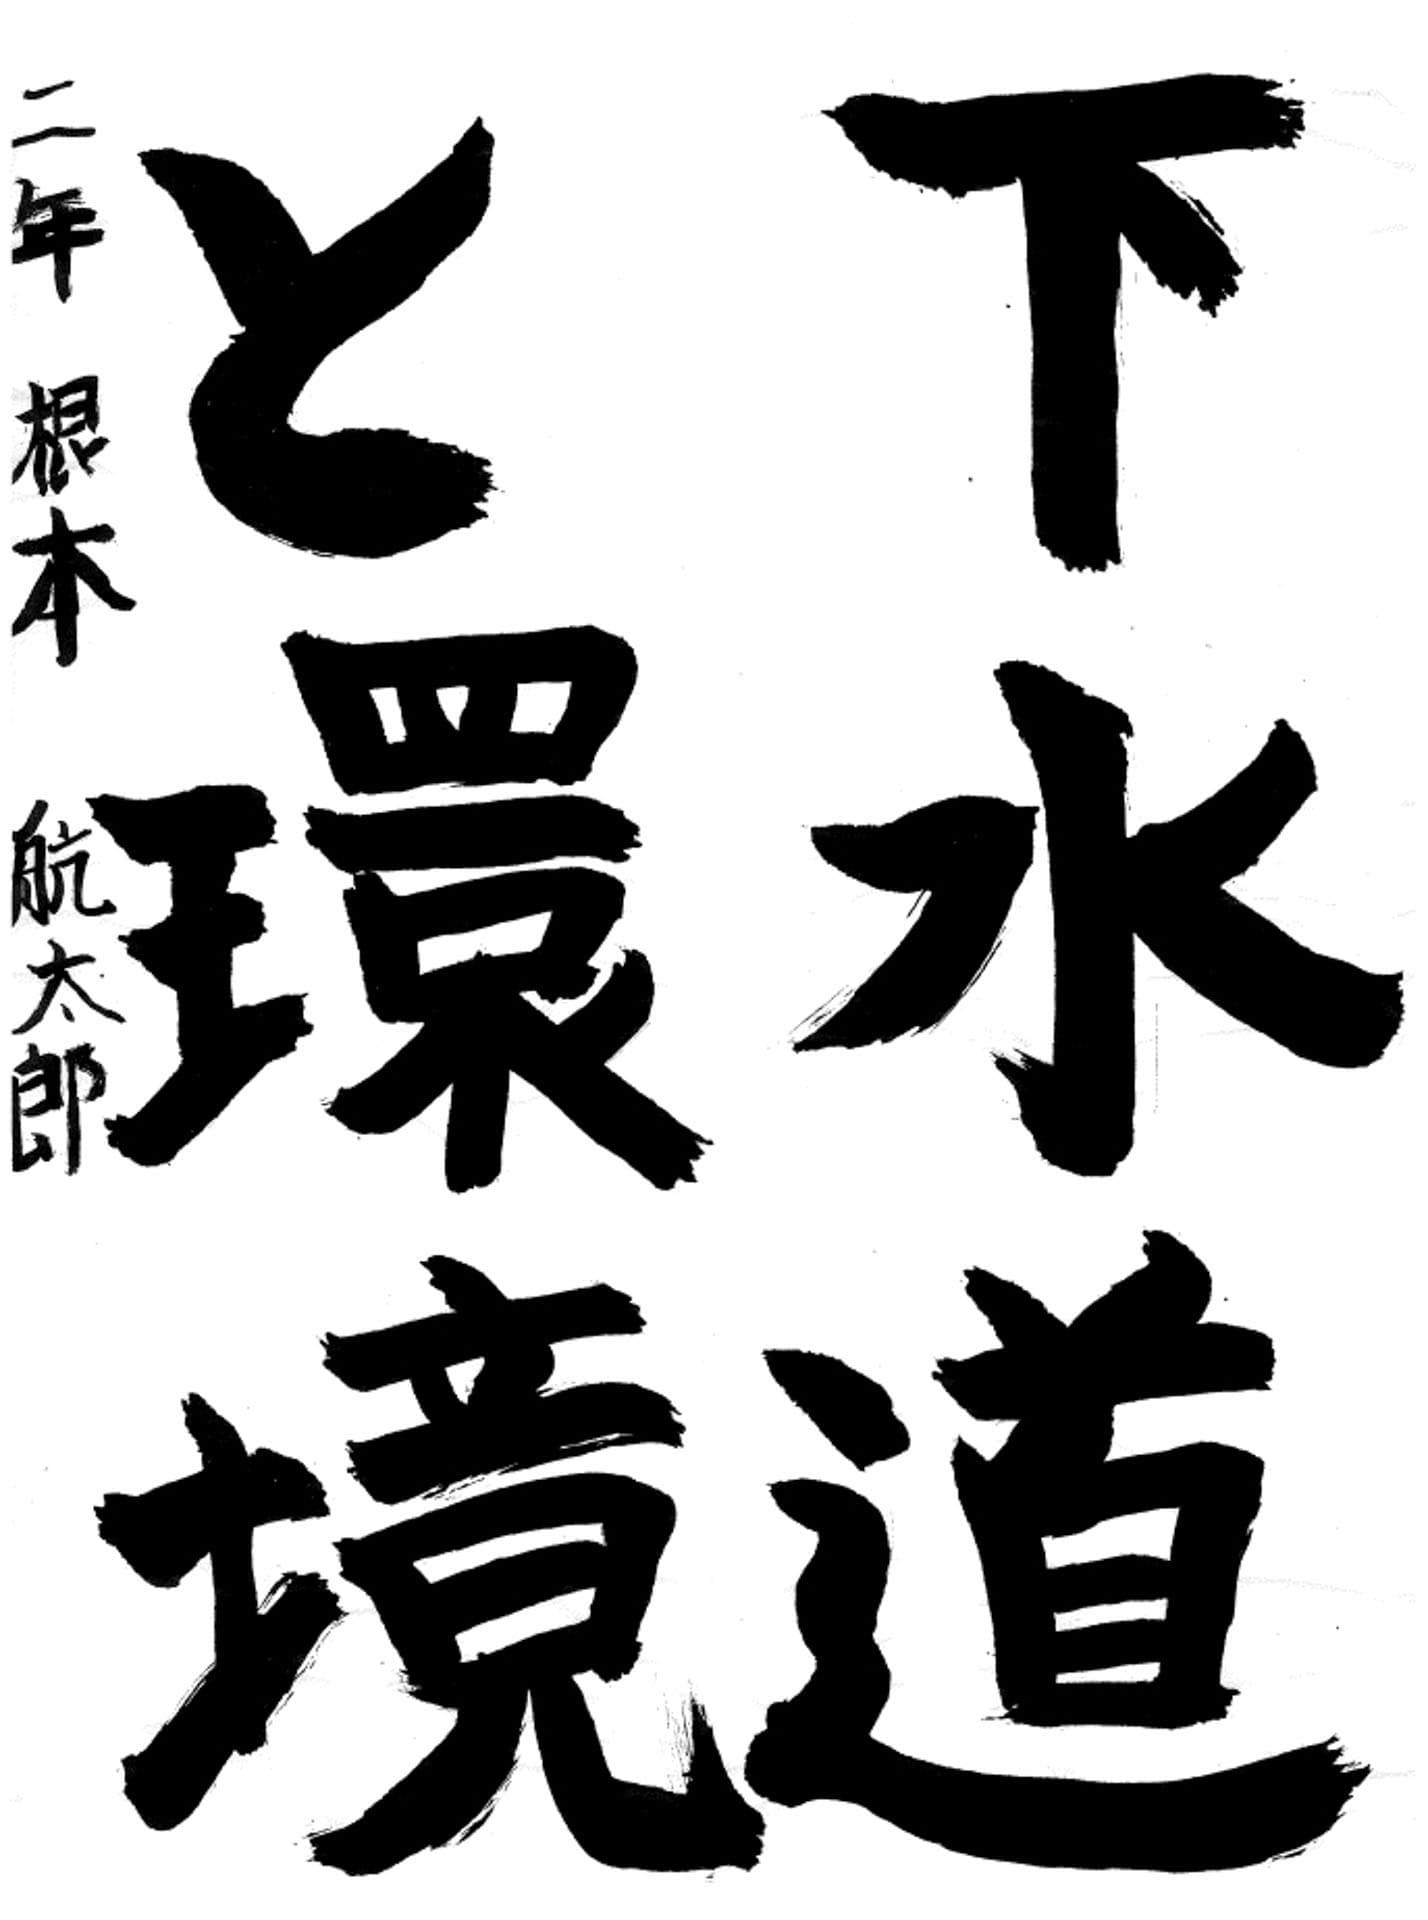 下水道
と環境
二年 根本 航太郎